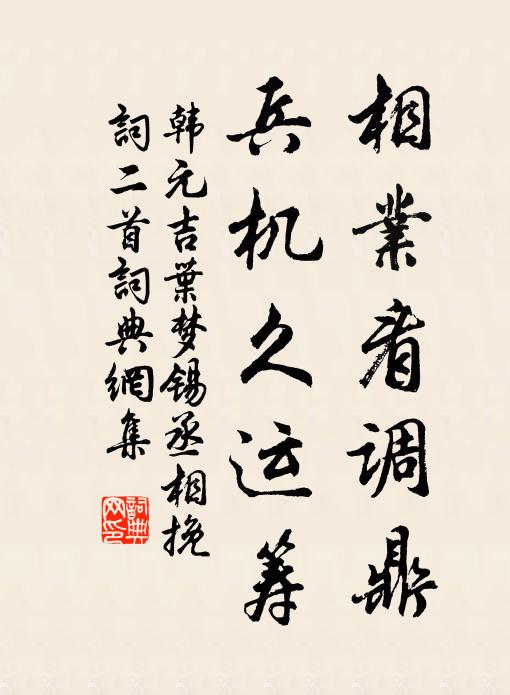 相業看調鼎
兵机久运筹
韩元吉葉梦锡丞相挽
詞二首詞典網集
詞典
网印